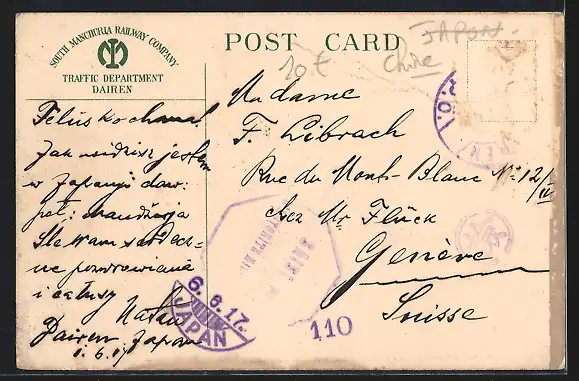 SOUTH MANCHURIA RAILWAY COMPANY
TRAFFIC DEPARTMENT
DAIREN
POST CARD
JAPON
Chine
10 €
Feluś kochana!
Jak widzisz jestem
w Japonji daw:
mandżurja
Ślę Wam serdecz-
ne pozdrowienia
i całusy
Natan
Dairen, Japan
1.6.17
Madame
F. Librach
Rue du Mont-Blanc No 12/IV
chez Mr Flück
Genève
Suisse
6.6.17.
JAPAN
110